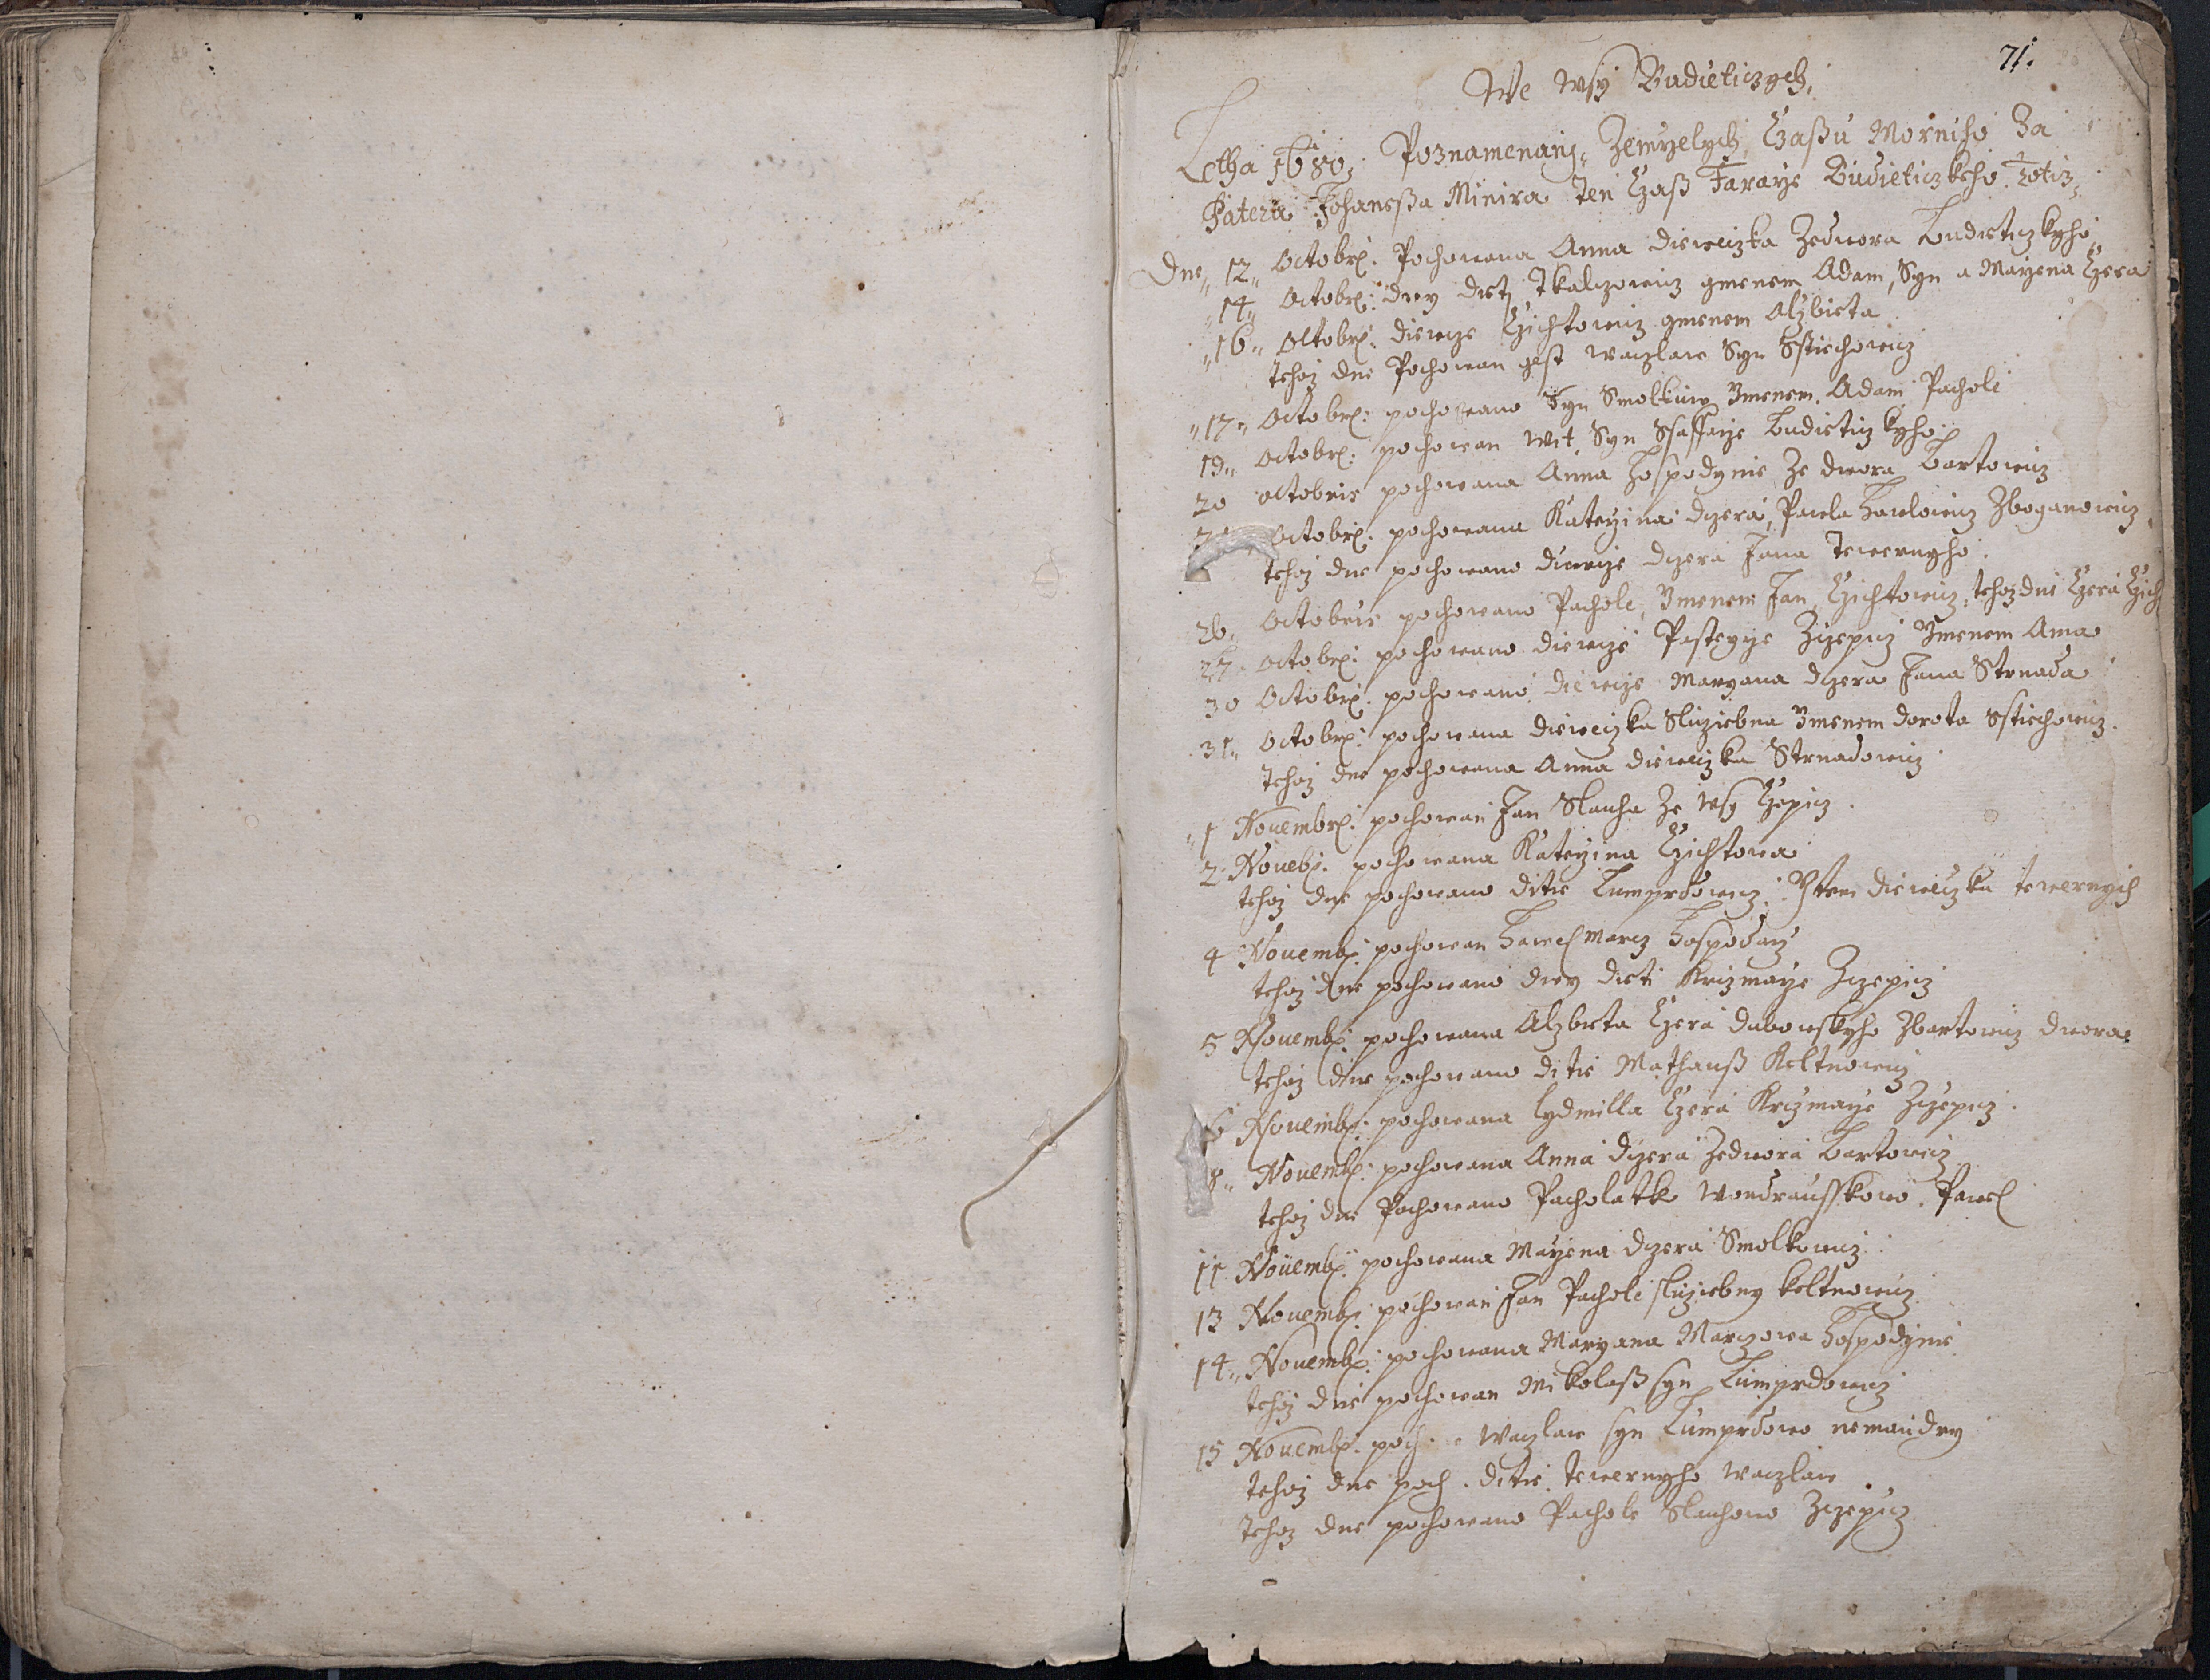 71.
We wsy Budieticzych,
Letha 1680, Poznamenanj Zemrzelych, Czaßu Morniho Za
Patera Johaneßa Minira Ten Czaß Fararze Budieticzkeho
Dne 12 Octobr: Pochowana Anna diewczka Zedwora Budieticzkyho
14 Octobr: dwy dieti Tkalczowicz gmenem Adam, Syn a Marzena Czera
16 Octobr: diewcze Czichtowicz gmenem Alzbieta
tehoz dne Pochowan gest waczlaw Syn Sstiechowicz
17 Octobr: pochowano Syn Smolkuw Ymenem Adam Pachole
19 Octobr: pochowan Wit, Syn Ssaffarze Budieticzkyho
20 octobris pochowana Anna Hospodynie Ze dwora Bartowicz
Octobr: pochowana Katerzina dczera, Pawla Hawlowicz
tehoz dne pochowano diewcze dczera Jana Tewernyho
26 Octobris pochowano Pachole, Ymenem Jan Czichtowicz, tehoz dne Czera Czich
27 Octobr: pochowano diewcze Pastyrze Zczepicz Ymenem Anna
30 Octobr: pochowano diewcze Maryana dczera Jana Strnada
31 Octobr: pochowana diewczka Sluziebna Ymenem dorota Sstiechowicz
tehoz dne pochowana Anna diewczka Strnadowicz
1 Nouembr: pochowan Jan Slauha Ze wsy Czepicz
2 Nouebr: pochowana Katerzina Czichtowa
tehoz dne pochowano ditie Lumprdowicz: Ytem diewczka tewernych
4 Nouemb: pochowan Hawel Marcz Hospodarz
tehoz dne pochowano dwy dieti Krizmarze Zczepicz
5 Nouemb: pochowana Alzbieta Czera dubowskyho Zbartowicz dwora
tehoz dne pochowano ditie Mathauß Keltnowicz
6 Nouemb: pochowana lydmilla Czera Krizmarze Zczepicz
8 Nouemb: pochowana Anna dczera Zedwora Bartowicz
tehoz dne Pochowano Pacholatko Wondrausskowo, Pawel
11 Nouemb: pochowana Marzena dczera Smolkowicz
13 Nouemb: pochowan Jan Pachole sluziebny keltnowicz
14 Nouemb: pochowana Maryana Marczowa Hospodynie
tehoz dne pochowan Mikolaß syn Lumprdowicz
15 Nouemb: poch. waczlaw syn Lumprdowo nemaudry
tehoz dne poch. ditie tewernyho waczlaw
tehoz dne pochowano Pachole Slauhowo Zczepicz